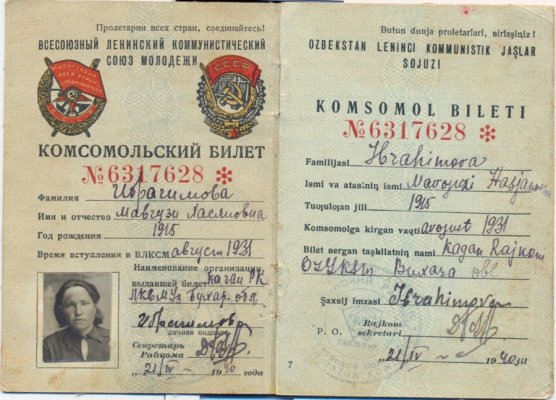 Пролетарии всех стран, соединяйтесь!
ВСЕСОЮЗНЫЙ ЛЕНИНСКИЙ КОММУНИСТИЧЕСКИЙ
СОЮЗ МОЛОДЕЖИ
КОМСОМОЛЬСКИЙ БИЛЕТ
№6317628 *
Фамилия Ибрагимова
Имя и отчество
Год рождения 1915
Время вступления в ВЛКСМ август 1931
Наименование организации,
выдавшей билет Каган РК
ЛКСМУз Бухар. обл
Ибрагимова
личная подпись
Секретарь
Райкома
„21/IV – 1940 года
Butun dunja proletarlari, birlaşiniz!
OZBEKSTAN LENINCI KOMMUNISTIK JAŞLAR
SOJUZI
KOMSOMOL BILETI
№6317628 *
Familijasi Ibrahimova
Ismi va atasinin ismi
Tuƣulƣan jili 1915
Komsomolga kirgan vaqti avgust 1931
Bilet bergan taşkilatnin nami Kagan Rajkom
Buxara obl
Şaxsij imzasi Ibrahimova
P. O. Rajkom
sekretari
„21/IV – 1940 jil
7